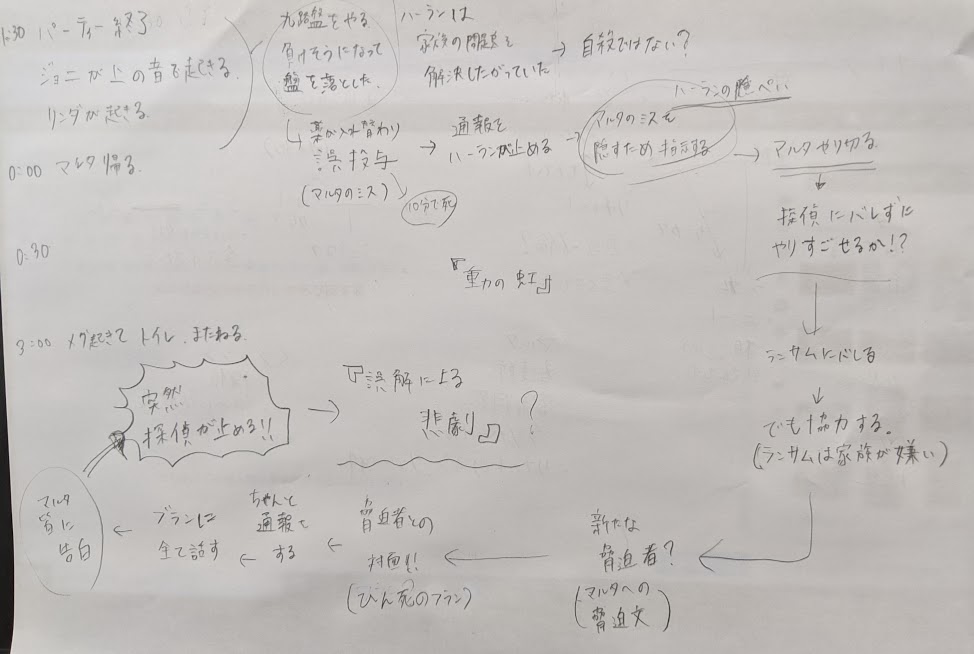 :30 パーティー終了
ジョニが上の音で起きる.
リンダが起きる.
0:00 マルタ帰る.
0:30
3:00 メグ起きて トイレ.またねる.
九路盤をやる
負けそうになって
盤を落とした.
ハーランは
家族の問題を
解決したがっていた
→ 自殺ではない?
↳ 薬が入れ替わり
誤投与
(マルタのミス)
10分で死
→ 通報を
ハーランが止める
ハーランの隠ぺい
→ マルタのミスを
隠すため指示する
→ マルタやり切る.
↓
探偵にバレずに
やりすごせるか!?
↓
ランサムにバレる
↓
でも協力する.
(ランサムは家族が嫌い)
『重力の虹』
新たな
脅迫者?
(マルタへの
脅迫文)
← 脅迫者との
対面!!
(ひん死のフラン)
← ちゃんと
通報を
する
← ブランに
全て話す
← マルタ
皆に
告白
突然
探偵が止める!!
→ 『誤解による
悲劇』?